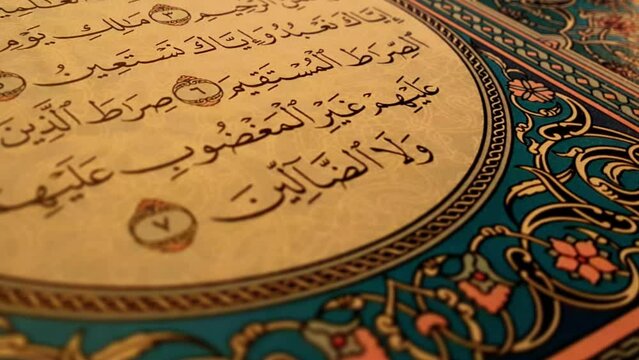 ٱلرَّحِيمِ ٣ مَٰلِكِ يَوْمِ
إِيَّاكَ نَعْبُدُ وَإِيَّاكَ نَسْتَعِينُ ٥
ٱلصِّرَٰطَ ٱلْمُسْتَقِيمَ ٦ صِرَٰطَ ٱلَّذِينَ
عَلَيْهِمْ غَيْرِ ٱلْمَغْضُوبِ عَلَيْهِمْ
وَلَا ٱلضَّآلِّينَ ٧